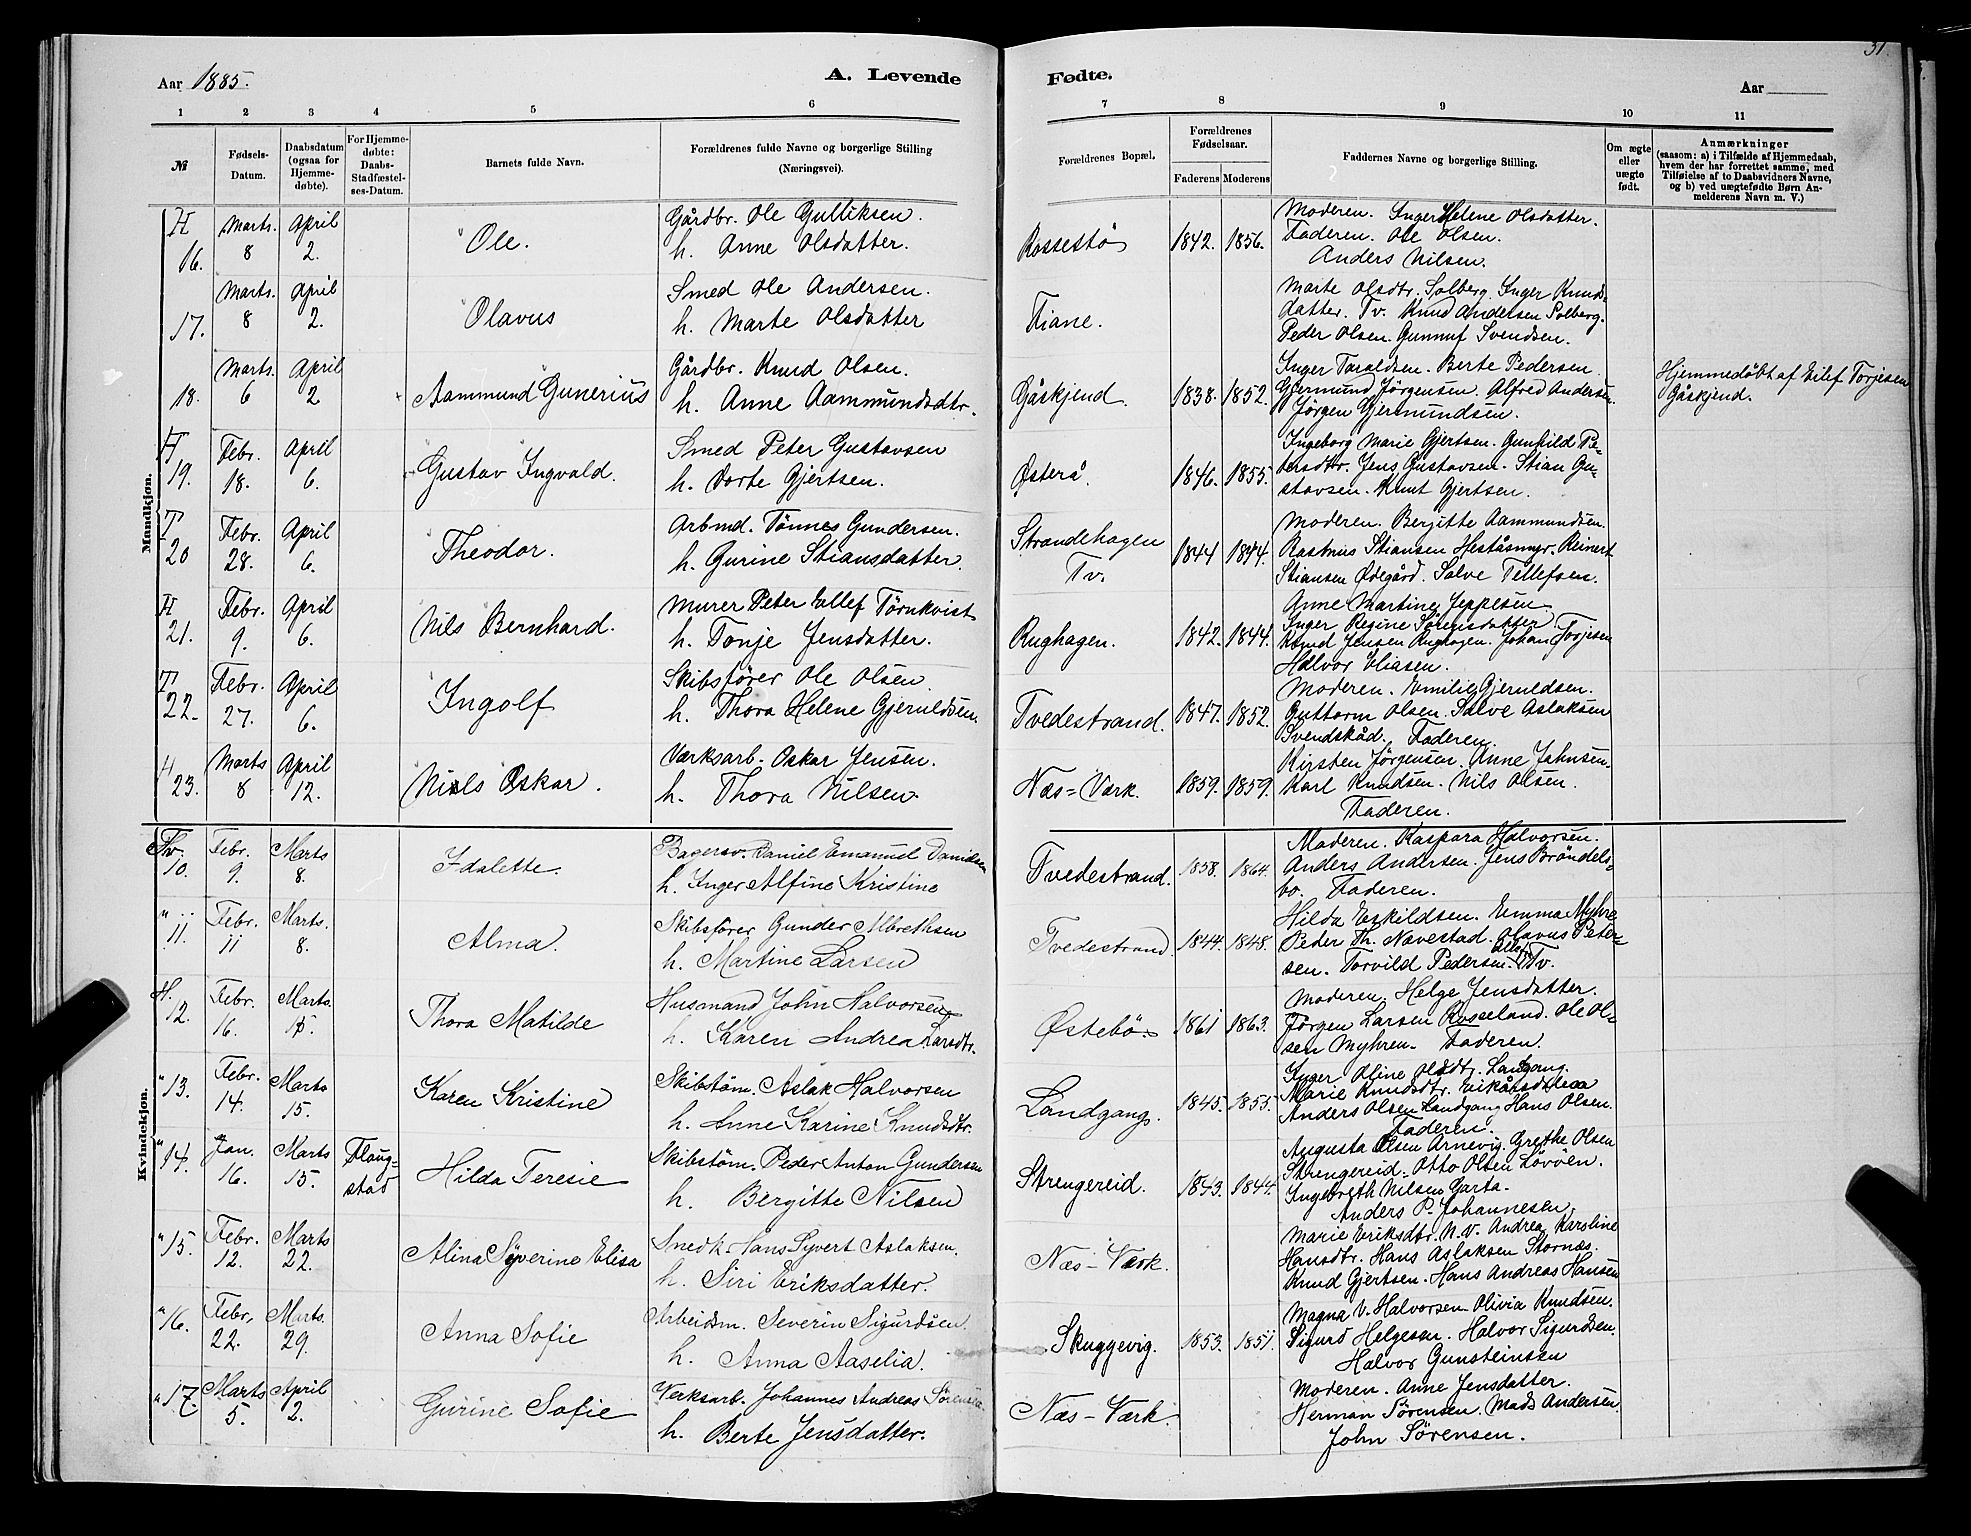 31.
Aar 1885. A. Levende Fødte. Aar
1 2 3 4 5 6 7 8 9 10 11
№ Fødsels-Datum. Daabsdatum (ogsaa for Hjemmedøbte). For Hjemmedøbte: Daabs-Stadfæstelses-Datum. Barnets fulde Navn. Forældrenes fulde Navne og borgerlige Stilling (Næringsvei). Forældrenes Bopæl. Forældrenes Fødselsaar. Faderens Moderens Faddernes Navne og borgerlige Stilling. Om ægte eller uægte født. Anmærkninger (saasom: a) i Tilfælde af Hjemmedaab, hvem der har forrettet samme, med Tilføielse af to Daabsvidners Navne, og b) ved uægtefødte Børn Anmelderens Navn m. V.)
Mandkjøn.
H 16. Marts. 8 April 2. Ole. Gårdbr. Ole Gulliksen. h. Anne Olsdatter. Rossestø 1842. 1856. Moderen. Inger Helene Olsdatter.
Faderen. Ole Olsen.
Anders Nilsen.
17. Marts. 8 April 2. Olavus Smed Ole Andersen. h. Marte Olsdatter Tiane. Marte Olsdtr. Solberg. Inger Knuds-
datter. Tv. Knud Andersen Solberg.
Peder Olsen. Gunnuf Svendsen.
18. Marts. 6 April 2 Aammund Gunerius Gårdbr. Knud Olsen. h. Anne Aammundsdtr. Gåskjend. 1838. 1852. Inger Taraldsen. Berte Pedersen.
Gjermund Jørgensen. Alfred Andersen.
Jørgen Gjermundsen.
Hjemmedøbt af Eilef Torjesen
Gåskjend.
H 19. Febr. 18. April 6. Gustav Ingvald. Smed Peter Gustavsen h. Dorte Gjertsen. Østerå. 1846. 1855. Ingeborg Marie Gjertsen. Gunhild Pe-
dersdtr. Jens Gustavsen. Stian Gu-
stavsen. Knut Gjertsen.
T 20 Febr. 28. April 6. Theodor. Arbmd. Tønnes Gundersen. h. Gurine Stiansdatter. Strandehagen Tv. 1844 1844. Moderen. Bergitte Aammundsen.
Rasmus Stiansen Heståsmyr. Reinert
Stiansen Ødegård. Salve Tellefsen.
H 21. Febr. 9. April 6. Nils Bernhard. Murer Peter Ellef Törnkvist h. Tonje Jensdatter. Rughagen. 1842. 1844. Anne Martine Jeppesen
Inger Regine Sørensdatter.
Knud Jensen Rughagen. Johan Torjesen
Halvor Eliasen.
T. 22. Febr. 27. April 6. Ingolf Skibsfører Ole Olsen h. Thora Helene Gjeruldsen. Tvedestrand. 1847. 1852. Moderen. Emilie Gjeruldsen.
Guttorm Olsen. Salve Aslaksen
Svendskåd. Faderen.
H 23. Marts 8 April 12. Niels Oskar. Værksarb. Oskar Jensen. h. Thora Nilsen. Næs=Værk. 1859. 1859. Kirsten Jørgensen. Anne Johnsen.
Karl Knudsen. Nils Olsen.
Faderen.
Kvindekjøn.
Tv. 10. Febr. 9. Marts 8. Idalette. Bagersv. Daniel Emanuel Danielsen h. Inger Alfine Kristine Tvedestrand. 1858. 1864. Moderen. Kaspara Halvorsen.
Anders Andersen. Jens Brøndels-
bo. Faderen.
" 11. Febr. 11 Marts. 8. Alma. Skibsfører Gunder Albrethsen h. Martine Larsen Tvedestrand 1844. 1848. Hilda Eskildsen. Emma Myhre
Peder Th. Navestad. Olavus Peter-
sen. Torvild Pedersen. Alle Tv.
H. 12. Febr. 16. Marts. 15. Thora Matilde Husmand John Halvorsen h. Karen Andrea Larsdtr. Østebø 1861 1863. Moderen. Helge Jensdatter.
Jørgen Larsen Rosseland. Ole Ol-
sen Myhren. Faderen.
" 13. Febr. 14. Marts 15. Karen Kristine Skibstøm. Aslak Halvorsen h. Anne Karine Knudsdtr. Landgang. 1845. 1855. Inger Oline Olsdtr. Landgang.
Marie Knudsdtr.
Anders Olsen Landgang Hans Olsen.
Faderen.
" 14. Jan. 16. Marts 15. Flaug-
stad Hilda Teresie Skibstøm. Peder Anton Gundersen h. Bergitte Nilsen Strengereid. 1843. 1844. Augusta Olsen Arnevig. Grethe Olsen
Strengereid. Otto Olsen Løvøen.
Ingebreth Nilsen Garta.
Anders P. Johannesen.
" 15. Febr. 12. Marts 22. Alina Syverine Elisa Smedk. Hans Syvert Aslaksen. h. Siri Eriksdatter. Næs-Værk. Marie Eriksdtr. N.V. Andrea Karoline
Hansdtr. Hans Aslaksen Stornæs.
Knud Gjertsen. Hans Andreas Hansen
" 16. Febr. 22. Marts. 29. Anna Sofie Arbeidsm. Severin Sigurdsen. h. Anna Aaselia. Skuggevig. 1853. 1851. Magna V. Halvorsen. Olivia Knudsen.
Sigurd Helgesen. Halvor Sigurdsen.
Halvor Gunsteinsen
" 17. Marts 5. April 2. Gurine Sofie Værksarb. Johannes Andreas Sørensen h. Berte Jensdatter. Næs-Værk. Moderen. Anne Jensdatter.
Herman Sørensen. Mads Andersen.
John Sørensen.